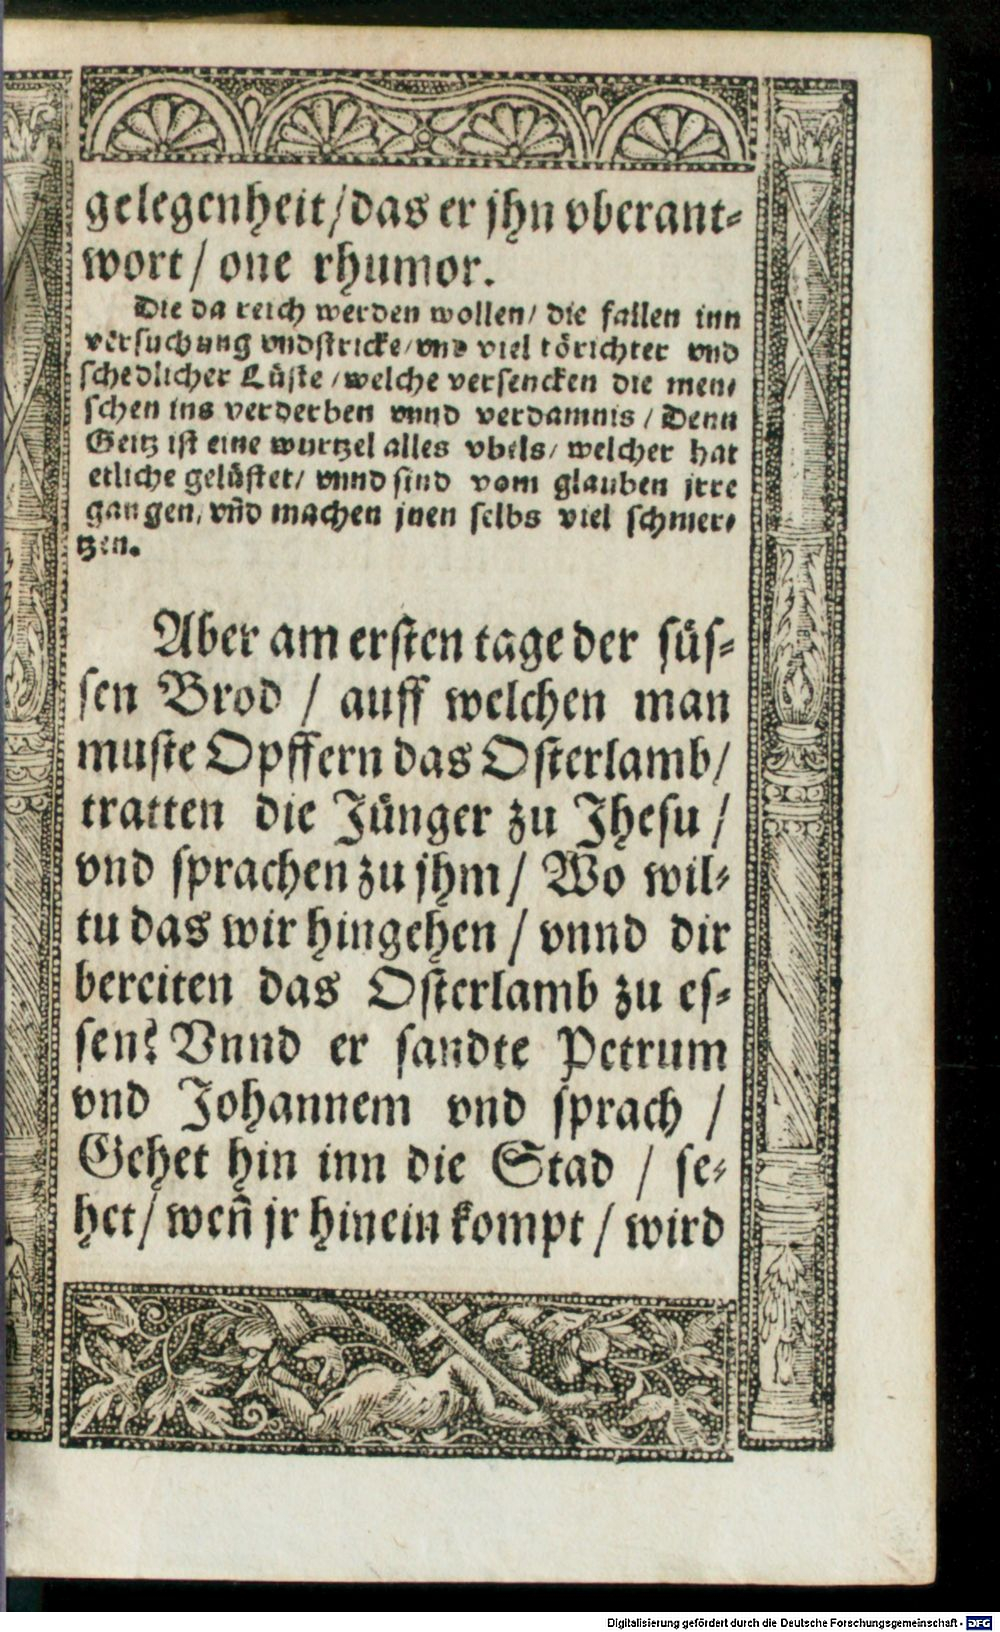 gelegenheit/das er jhn vberant-
wort/ one rhumor.
Die da reich werden wollen/ die fallen inn
versuchung vndstricke/vnd viel törichter vnd
schedlicher Lüste /welche versencken die men-
schen ins verderben vnnd verdamnis / Denn
Geitz ist eine wurtzel alles vbels/ welcher hat
etliche gelüstet/ vnnd sind vom glauben jrre
gangen, vñd machen jnen selbs viel schmer-
tzen.
Aber am ersten tage der süs-
sen Brod / auff welchen man
muste Opffern das Osterlamb/
tratten die Jünger zu Jhesu /
vnd sprachen zu jhm/ Wo wil-
tu das wir hingehen / vnnd dir
bereiten das Osterlamb zu es-
sen? Vnnd er sandte Petrum
vnd Johannem vnd sprach /
Gehet hin inn die Stad / se-
het/ weñ jr hinein kompt / wird
Digitalisierung gefördert durch die Deutsche Forschungsgemeinschaft - DFG